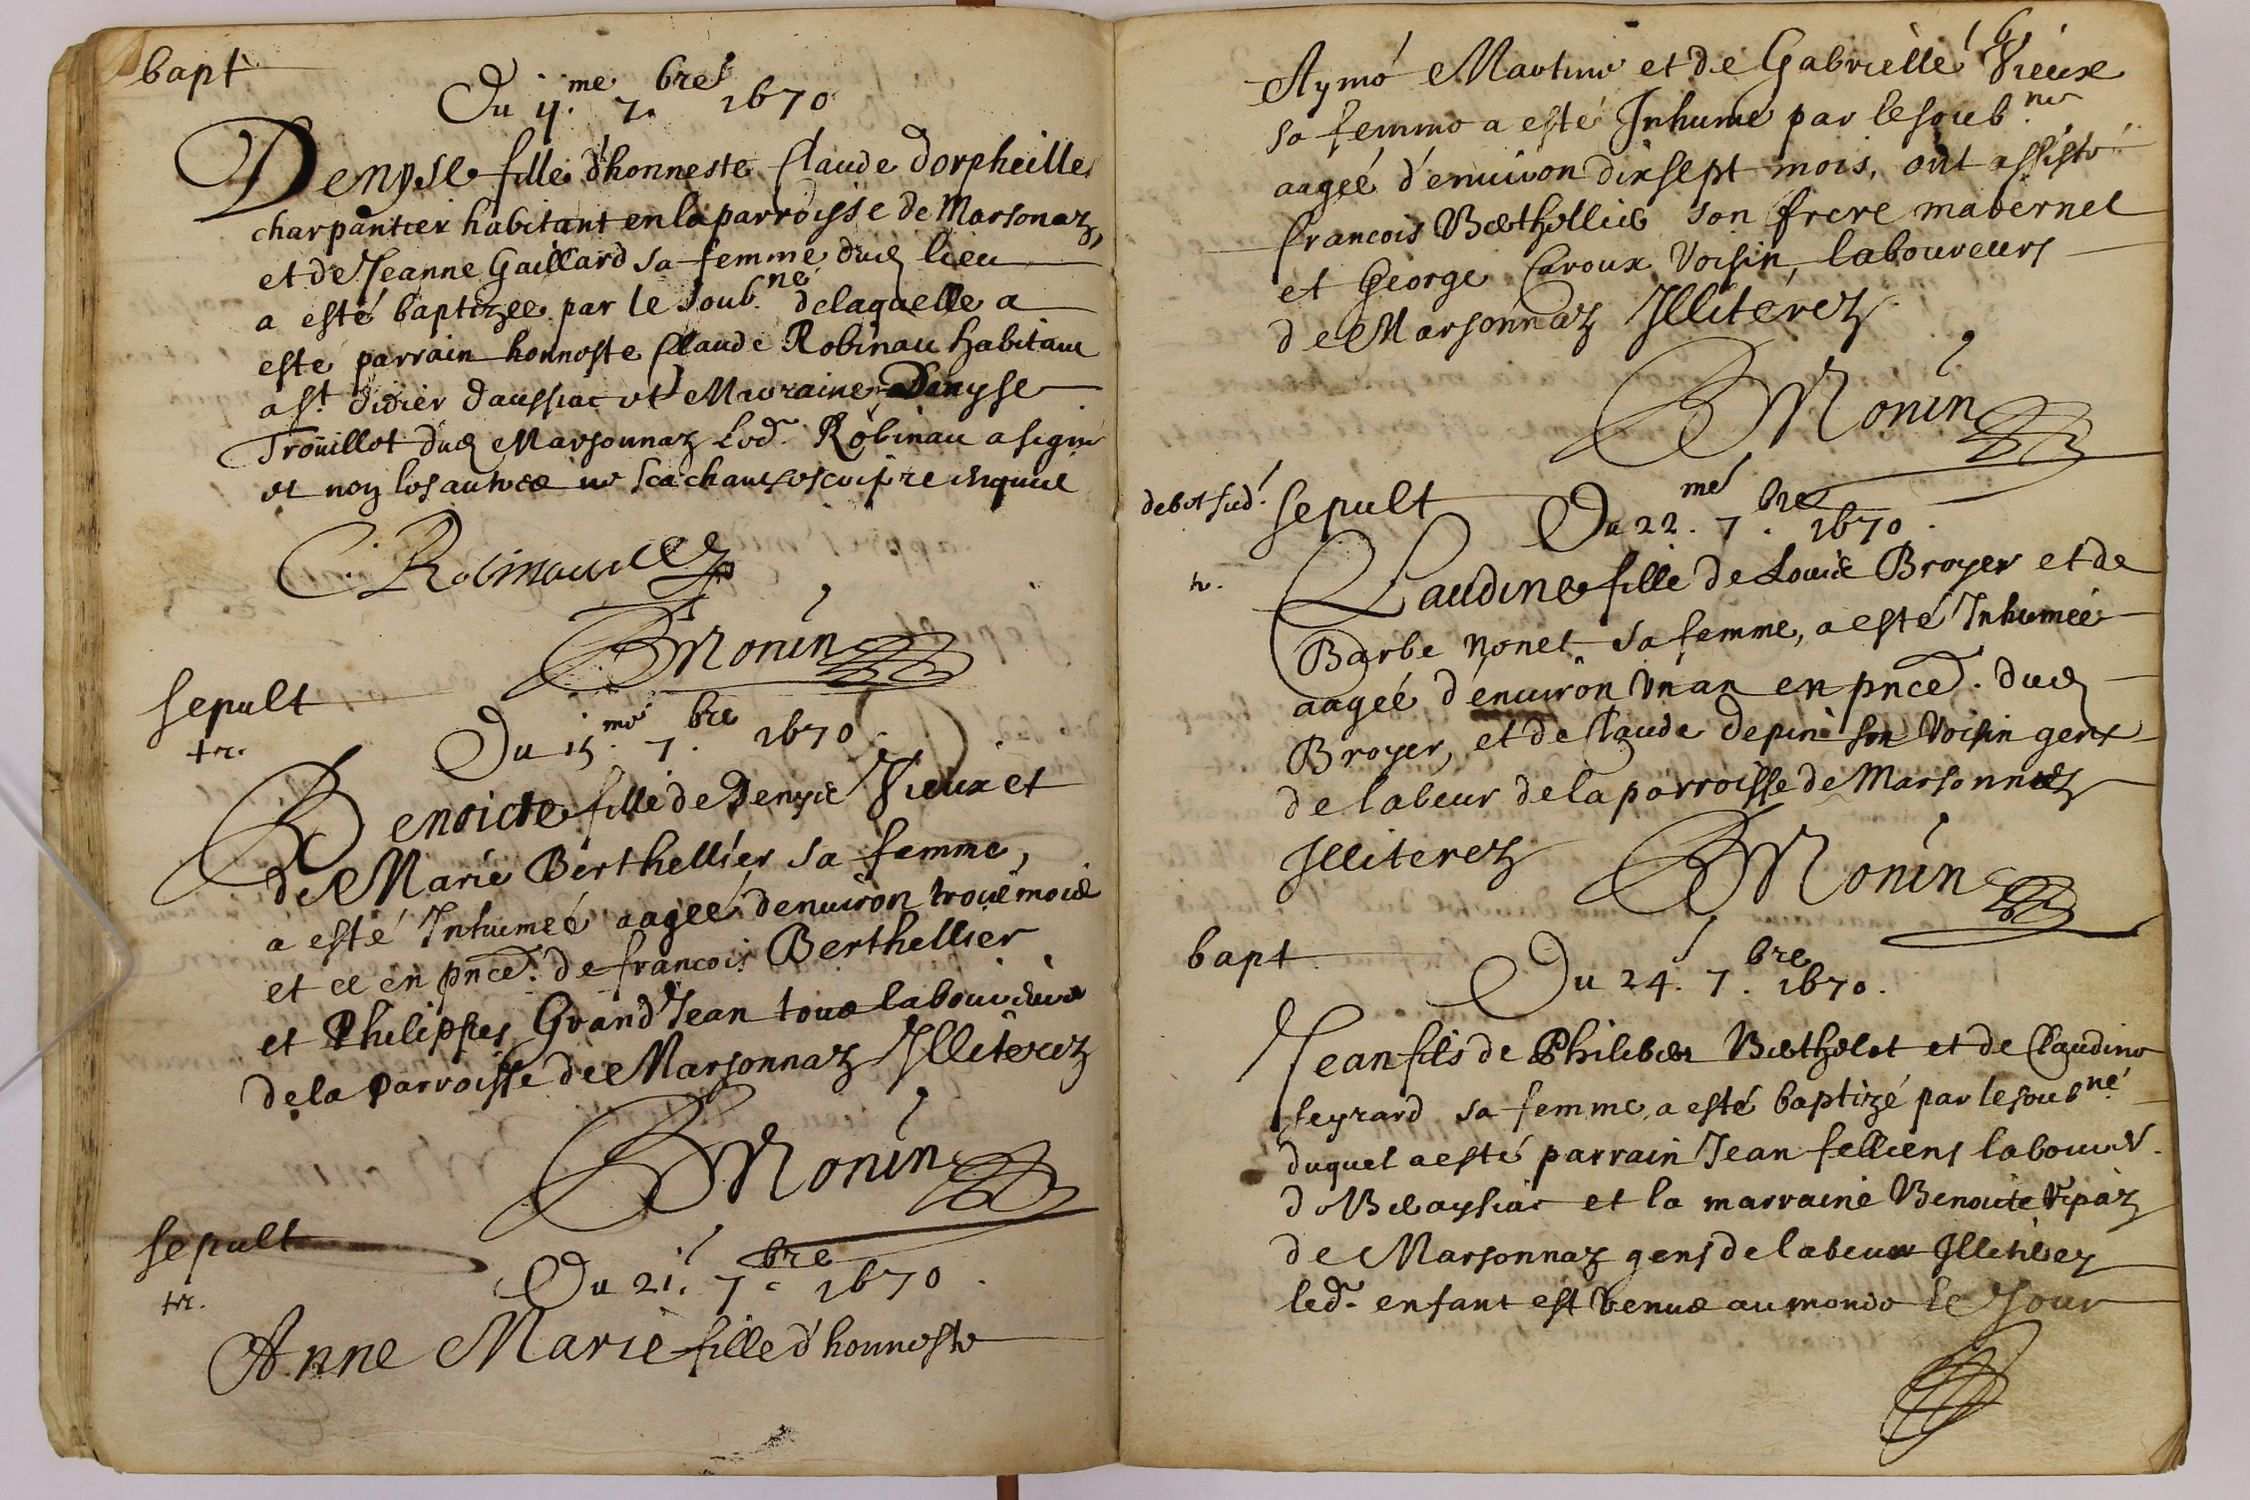 bapt
Du ij.me 7.bre 1670
Denyse fille d'honneste Claude dorpheille
charpantier habitant en la parroisse de Marsonaz,
et de Jeanne Gaillard sa femme dud lieu
a esté baptizee par le soub.né delaquelle a
esté parrain honneste Claude Robinau habitant
a st. didier daussiac et Marraine Denyse
Troüillot dud Marsonnaz Led. Robinau a signé
et non les autres ne scachant escripre enquis
C. Robinau
B Monin
sepult
tr.
Du 15.me 7.bre 1670
Benoicte fille de Denys Vieux et
de Marie Berthellier sa femme,
a esté Inhumeé aageé denuiron trois mois
et ce en pnce. de francois Berthellier
et Philippes Grand Jean tous laboureurs
de la parroisse de Marsonnaz Illiterez
B Monin
sepult
tr.
Du 21. 7.bre 1670
Anne Marie fille d'honneste
6
Aymé Martin et de Gabrielle Vieux
sa femme a esté Inhume par le soub.né
aageé d'enuiron dixsept mois, ont assisté
francois Berthellier son frere maternel
et George Caroux Voisin, laboureurs
de Marsonnaz Illiterez
B Monin
debet sud. sepult
Du 22.me 7.bre 1670.
tr.
Claudine fille de Louis Broyer et de
Barbe Nonet sa femme, a esté Inhumeé
aageé d'enuiron Vn an en pnce. dud
Broyer, et de Claude depin son Voisin gens
de labeur de la parroisse de Marsonnaz
Illiterez B Monin
bapt
Du 24. 7.bre 1670.
Jean fils de Philibert Berthelet et de Claudine
feyrard sa femme a esté baptizé par le soub.né
duquel a esté parrain Jean felliens labour.
de Beaysiat et la marraine Benoite
de Marsonnaz gens de labeur Illiterez
led. enfant est Venus au monde le Jour